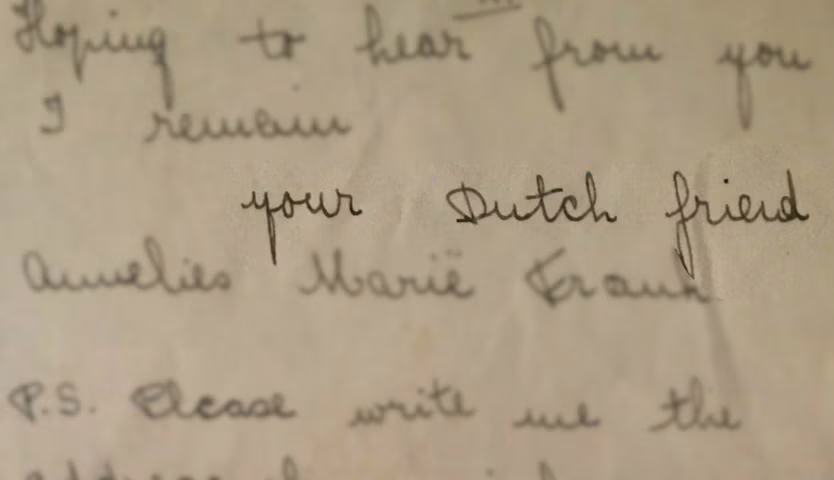 Hoping to hear from you
I remain
your Dutch friend
Annelies Marië Frank
P.S. Please write me the